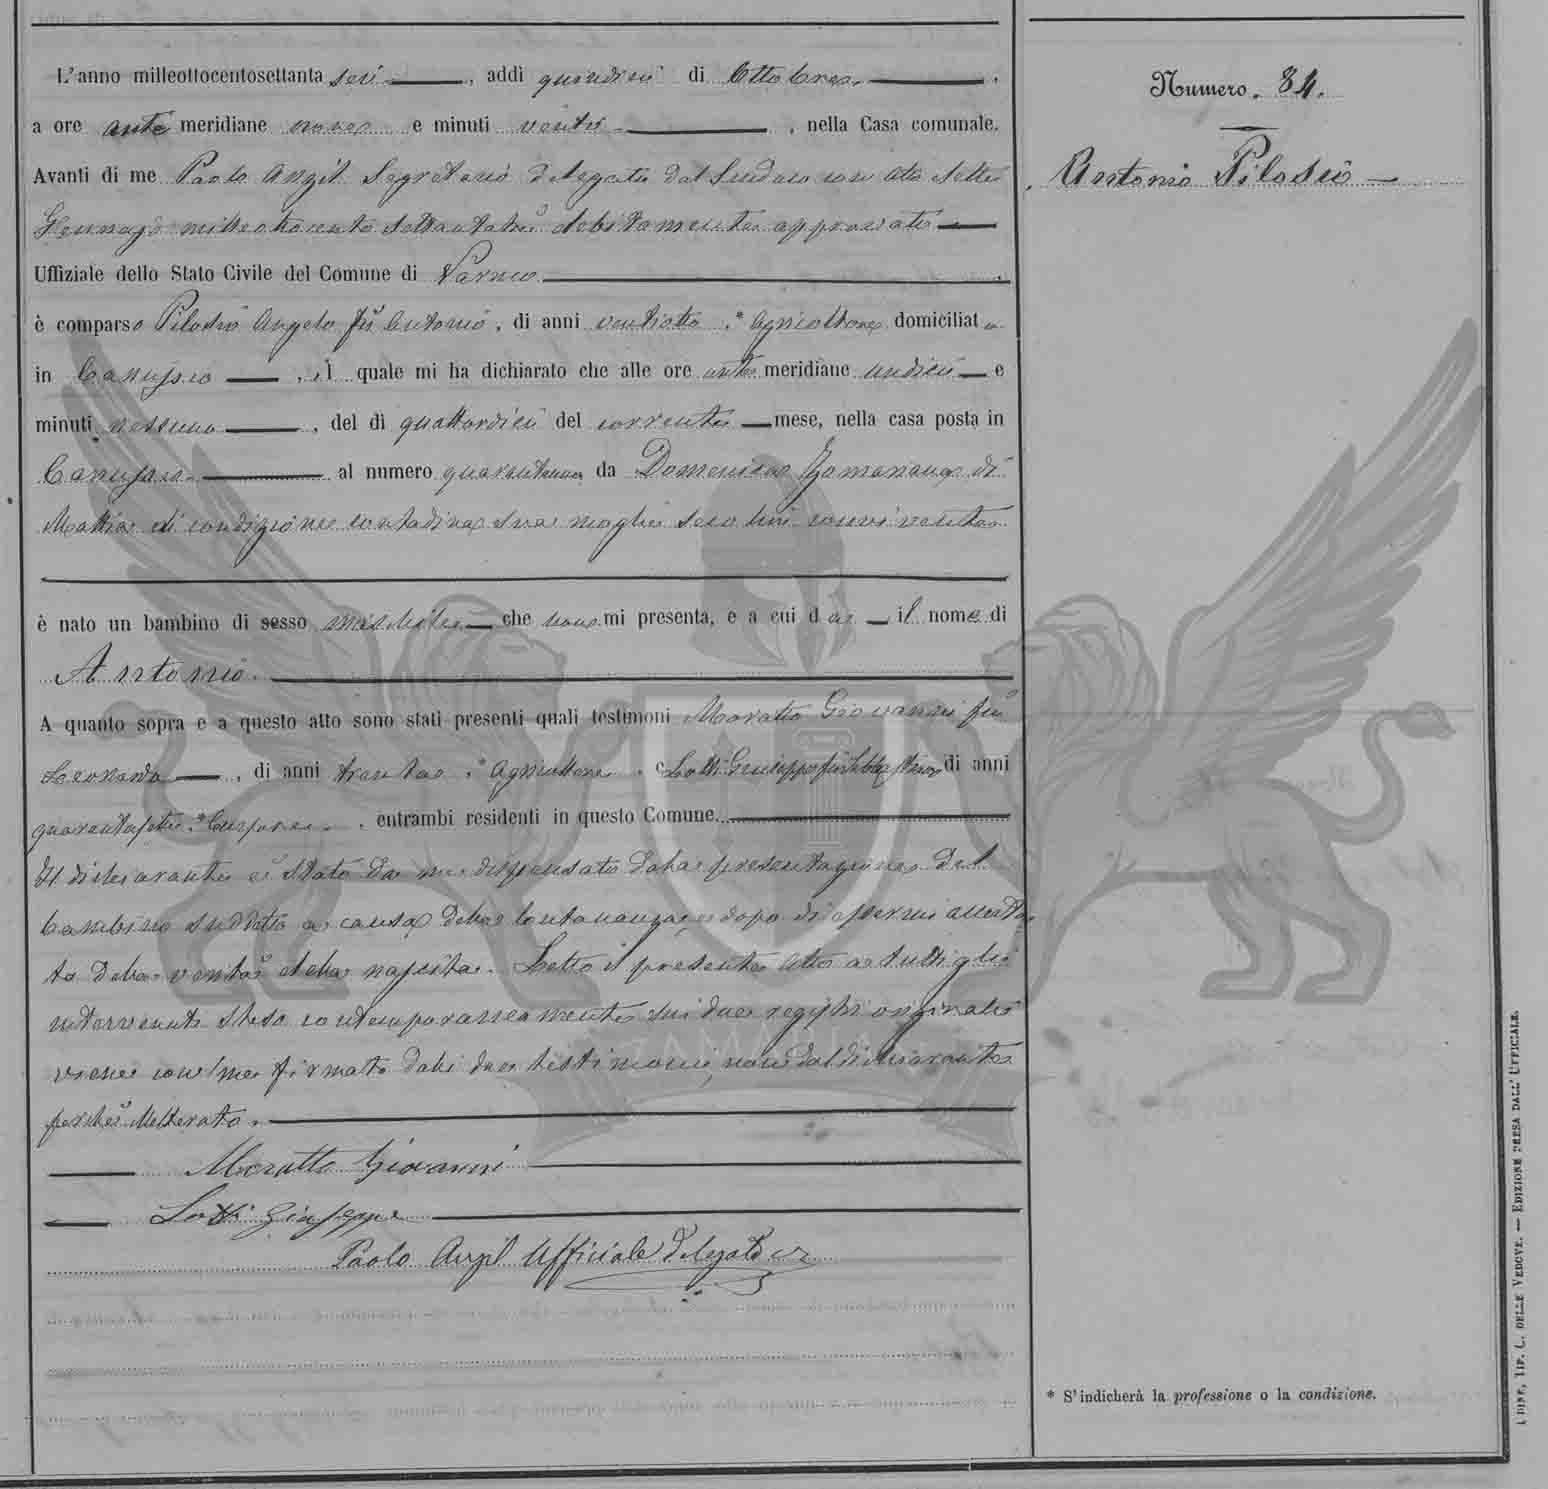 L'anno milleottocentosettanta sei, addì quindici di Ottobre,
a ore anti meridiane nove e minuti venti, nella Casa comunale.
Avanti di me Paolo Anzil Segretario delegato dal Sindaco con atto sette
Gennajo milleottocento settantatre debitamente approvato
Uffiziale dello Stato Civile del Comune di Varmo
è comparso Pilosio Angelo fù Antonio, di anni ventiotto, * Agricoltore domiciliato
in Canussio, il quale mi ha dichiarato che alle ore anti meridiane undici e
minuti nessuno, del dì quattordici del corrente mese, nella casa posta in
Canussio al numero da Domenica Zamarian di
Mattia di condizione contadina sua moglie seco lui convivente
è nato un bambino di sesso maschile che non mi presenta, e a cui dà il nome di
Antonio.
A quanto sopra e a questo atto sono stati presenti quali testimoni Moratto Giovanni fù
Leonardo, di anni trenta, * Agricoltore, e Lotti Giuseppe fu Sebastiano di anni
quarantasette, * Cursore, entrambi residenti in questo Comune.
Il dichiarante è stato da me dispensato dalla presentazione del
bambino suddetto a causa della lontananza, e dopo di essermi accerta
to della verità della nascita. Letto il presente atto a tutti gli
intervenuti steso contemporaneamente sui due registri originali
viene con me firmato dalli due testimoni, non dal dichiarante
perchè illetterato.
Moratto Giovanni
Lotti Giuseppe
Paolo Anzil Ufficiale delegato
Numero. 84.
Antonio Pilosio
* S'indicherà la professione o la condizione.
UDINE, TIP. C. DELLE VEDOVE. — EDIZIONE PRESA DALL'UFFICIALE.